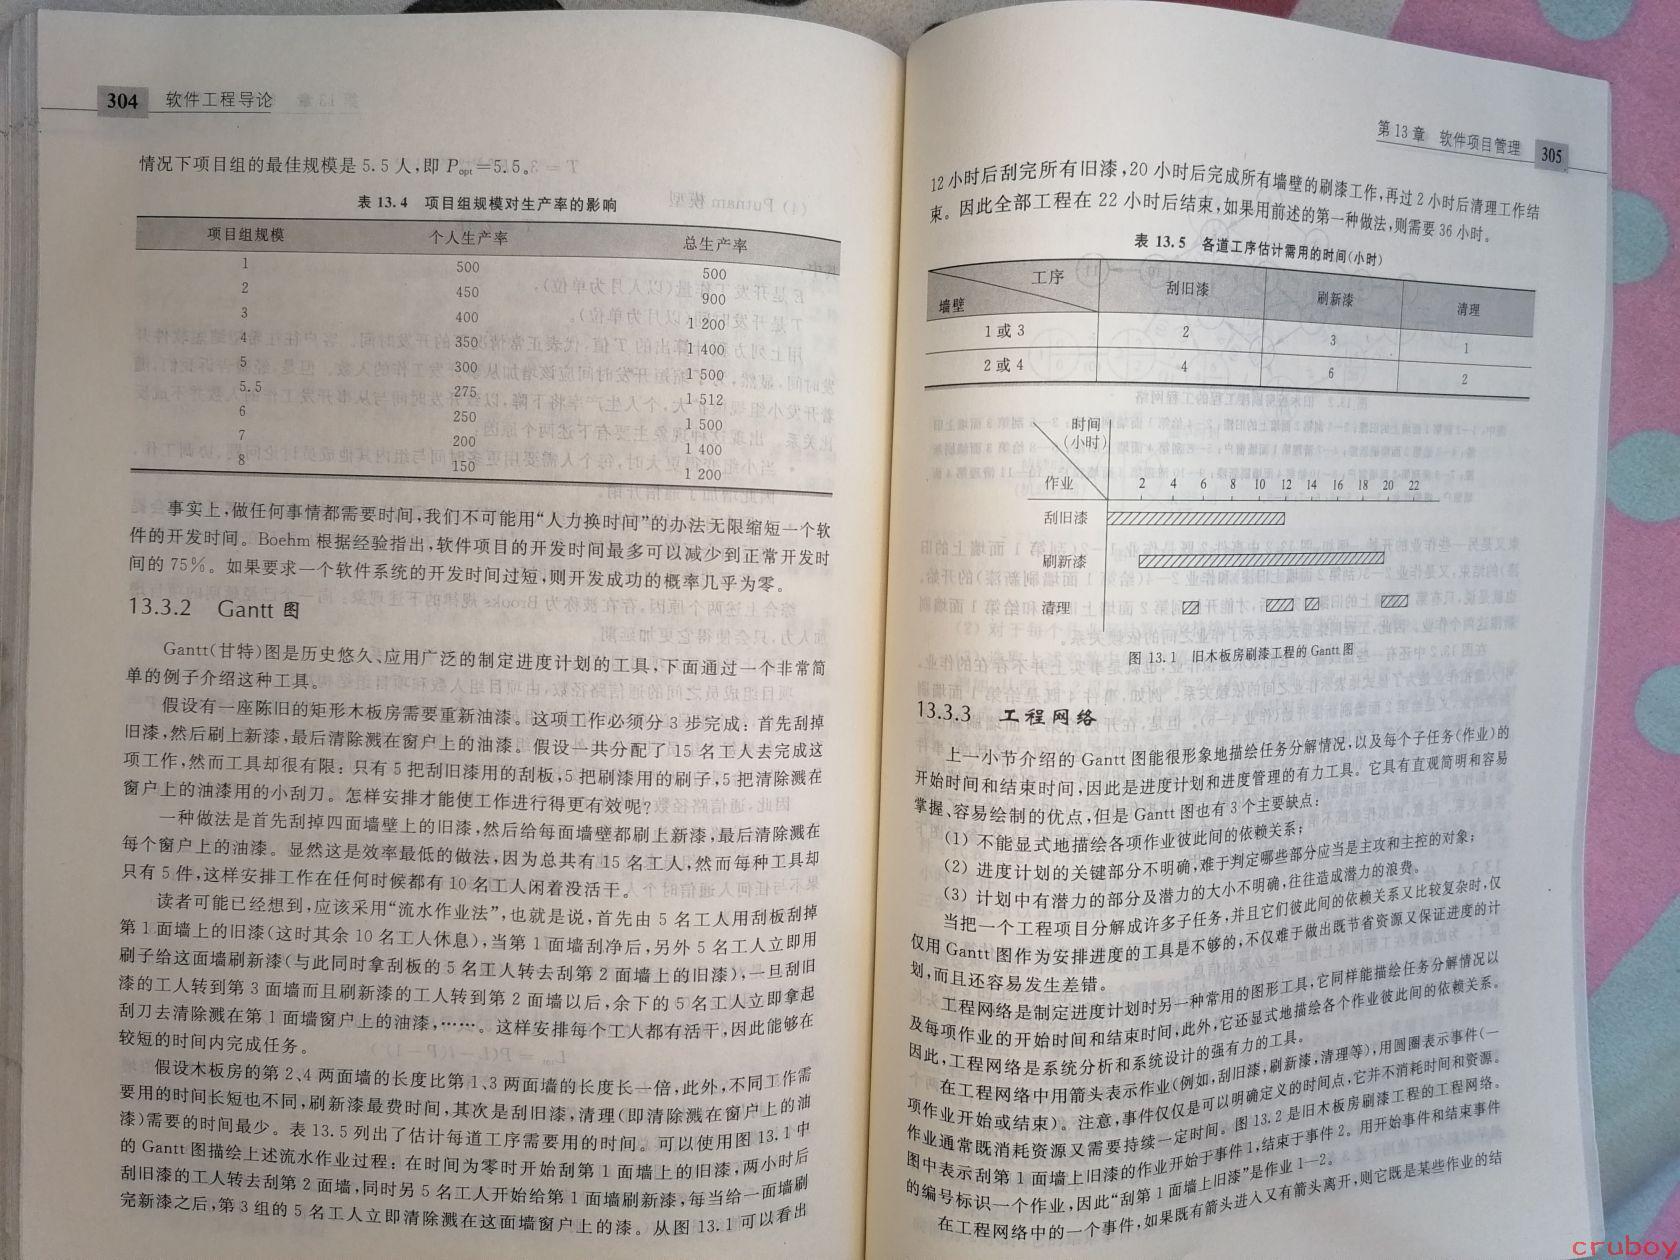 304 软件工程导论
情况下项目组的最佳规模是 5.5 人,即 Popt=5.5。
表 13.4 项目组规模对生产率的影响
项目组规模 个人生产率 总生产率
1 500 500
2 450 900
3 400 1 200
4 350 1 400
5 300 1 500
5.5 275 1 512
6 250 1 500
7 200 1 400
8 150 1 200
事实上,做任何事情都需要时间,我们不可能用“人力换时间”的办法无限缩短一个软
件的开发时间。Boehm 根据经验指出,软件项目的开发时间最多可以减少到正常开发时
间的 75%。如果要求一个软件系统的开发时间过短,则开发成功的概率几乎为零。
13.3.2 Gantt 图
Gantt(甘特)图是历史悠久、应用广泛的制定进度计划的工具,下面通过一个非常简
单的例子介绍这种工具。
假设有一座陈旧的矩形木板房需要重新油漆。这项工作必须分 3 步完成:首先刮掉
旧漆,然后刷上新漆,最后清除溅在窗户上的油漆。假设一共分配了 15 名工人去完成这
项工作,然而工具却很有限:只有 5 把刮旧漆用的刮板,5 把刷漆用的刷子,5 把清除溅在
窗户上的油漆用的小刮刀。怎样安排才能使工作进行得更有效呢?
一种做法是首先刮掉四面墙壁上的旧漆,然后给每面墙壁都刷上新漆,最后清除溅在
每个窗户上的油漆。显然这是效率最低的做法,因为总共有 15 名工人,然而每种工具却
只有 5 件,这样安排工作在任何时候都有 10 名工人闲着没活干。
读者可能已经想到,应该采用“流水作业法”,也就是说,首先由 5 名工人用刮板刮掉
第 1 面墙上的旧漆(这时其余 10 名工人休息),当第 1 面墙刮净后,另外 5 名工人立即用
刷子给这面墙刷新漆(与此同时拿刮板的 5 名工人转去刮第 2 面墙上的旧漆),一旦刮旧
漆的工人转到第 3 面墙而且刷新漆的工人转到第 2 面墙以后,余下的 5 名工人立即拿起
刮刀去清除溅在第 1 面墙窗户上的油漆,……。这样安排每个工人都有活干,因此能够在
较短的时间内完成任务。
假设木板房的第 2、4 两面墙的长度比第 1、3 两面墙的长度长一倍,此外,不同工作需
要用的时间长短也不同,刷新漆最费时间,其次是刮旧漆,清理(即清除溅在窗户上的油
漆)需要的时间最少。表 13.5 列出了估计每道工序需要用的时间。可以使用图 13.1 中
的 Gantt 图描绘上述流水作业过程:在时间为零时开始刮第 1 面墙上的旧漆,两小时后
刮旧漆的工人转去刮第 2 面墙,同时另 5 名工人开始给第 1 面墙刷新漆,每当给一面墙刷
完新漆之后,第 3 组的 5 名工人立即清除溅在这面墙窗户上的漆。从图 13.1 可以看出
第 13 章 软件项目管理 305
12 小时后刮完所有旧漆,20 小时后完成所有墙壁的刷漆工作,再过 2 小时后清理工作结
束。因此全部工程在 22 小时后结束,如果用前述的第一种做法,则需要 36 小时。
表 13.5 各道工序估计需用的时间(小时)
工序 刮旧漆 刷新漆 清理
墙壁
1 或 3 2 3 1
2 或 4 4 6 2
时间
(小时)
作业 2 4 6 8 10 12 14 16 18 20 22
刮旧漆
刷新漆
清理
图 13.1 旧木板房刷漆工程的 Gantt 图
13.3.3 工程网络
上一小节介绍的 Gantt 图能很形象地描绘任务分解情况,以及每个子任务(作业)的
开始时间和结束时间,因此是进度计划和进度管理的有力工具。它具有直观简明和容易
掌握、容易绘制的优点,但是 Gantt 图也有 3 个主要缺点:
(1) 不能显式地描绘各项作业彼此间的依赖关系;
(2) 进度计划的关键部分不明确,难于判定哪些部分应当是主攻和主控的对象;
(3) 计划中有潜力的部分及潜力的大小不明确,往往造成潜力的浪费。
当把一个工程项目分解成许多子任务,并且它们彼此间的依赖关系又比较复杂时,仅
仅用 Gantt 图作为安排进度的工具是不够的,不仅难于做出既节省资源又保证进度的计
划,而且还容易发生差错。
工程网络是制定进度计划时另一种常用的图形工具,它同样能描绘任务分解情况以
及每项作业的开始时间和结束时间,此外,它还显式地描绘各个作业彼此间的依赖关系。
因此,工程网络是系统分析和系统设计的强有力的工具。
在工程网络中用箭头表示作业(例如,刮旧漆,刷新漆,清理等),用圆圈表示事件(一
项作业开始或结束)。注意,事件仅仅是可以明确定义的时间点,它并不消耗时间和资源。
作业通常既消耗资源又需要持续一定时间。图 13.2 是旧木板房刷漆工程的工程网络。
图中表示刮第 1 面墙上旧漆的作业开始于事件 1,结束于事件 2。用开始事件和结束事件
的编号标识一个作业,因此“刮第 1 面墙上旧漆”是作业 1—2。
在工程网络中的一个事件,如果既有箭头进入又有箭头离开,则它既是某些作业的结
cruboy